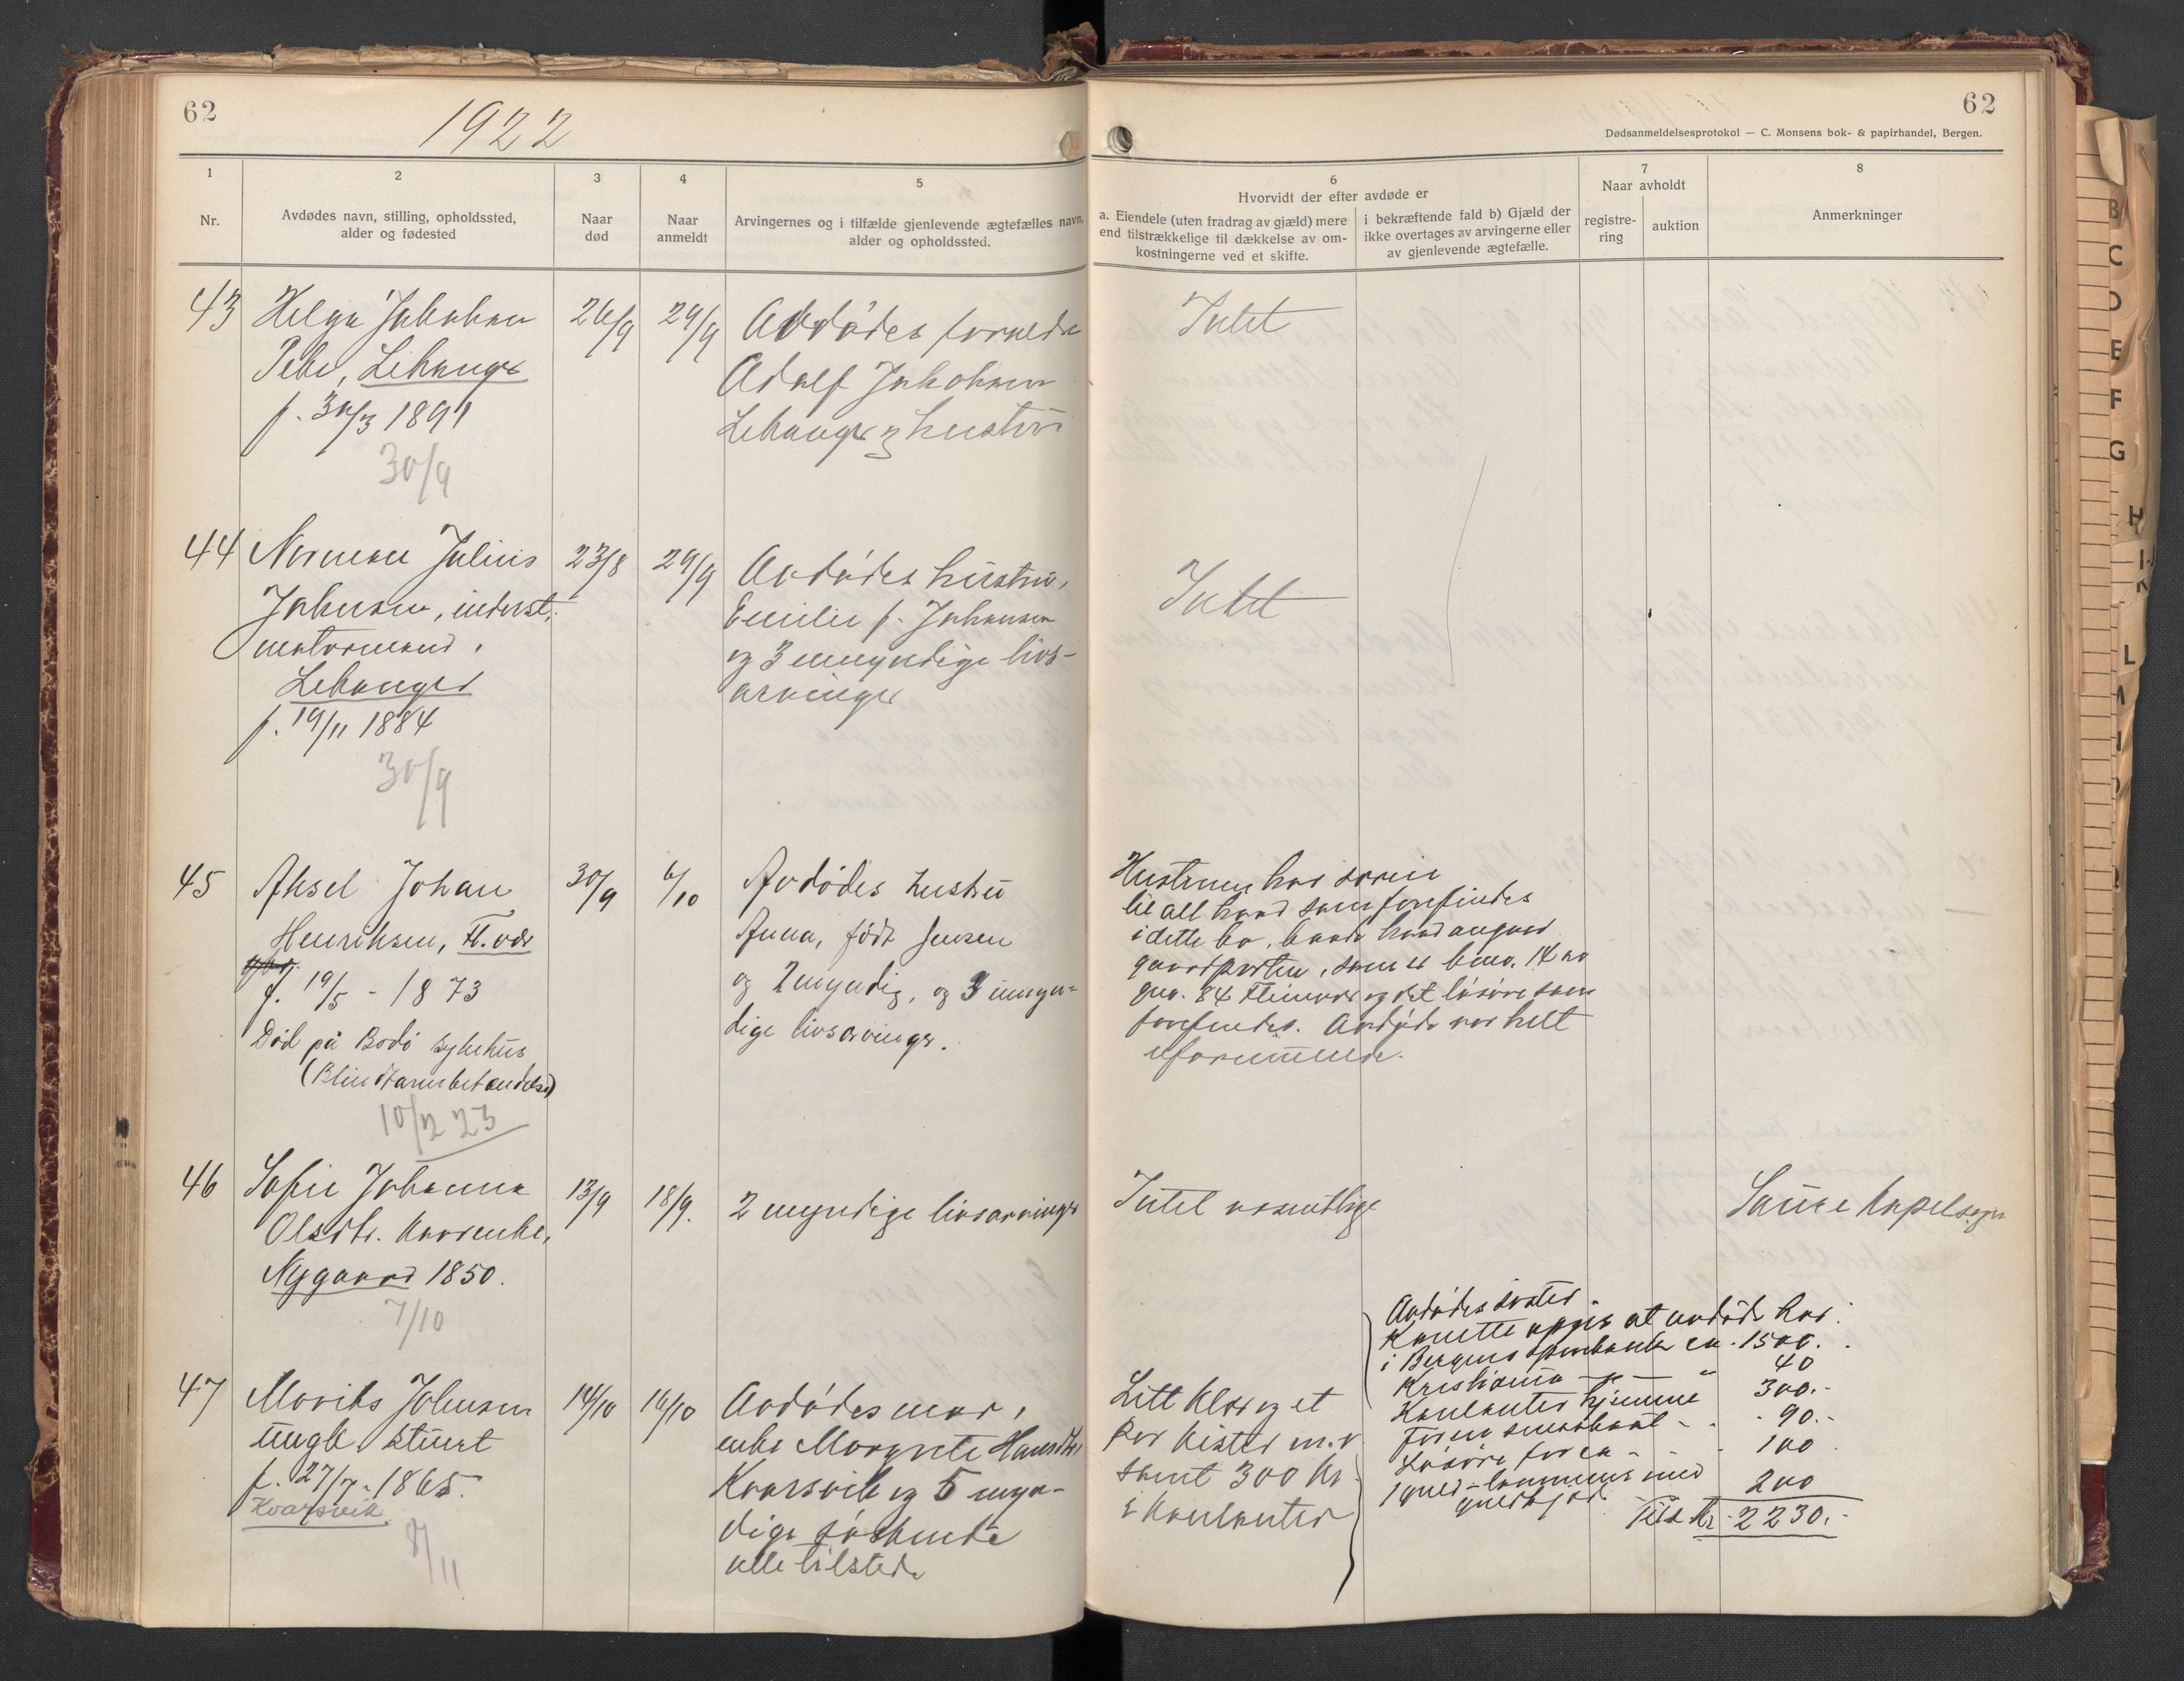 62
1922
62
Dødsanmeldelsesprotokol — C. Monsens bok- & papirhandel, Bergen.
1
Nr.
2
Avdødes navn, stilling, opholdssted,
alder og fødested
3
Naar
død
4
Naar
anmeldt
5
Arvingernes og i tilfælde gjenlevende ægtefælles navn,
alder og opholdssted.
6
Hvorvidt der efter avdøde er
a. Eiendele (uten fradrag av gjæld) mere
end tilstrækkelige til dækkelse av om-
kostningerne ved et skifte.
i bekræftende fald b) Gjæld der
ikke overtages av arvingerne eller
av gjenlevende ægtefælle.
7
Naar avholdt
registre-
ring
auktion
8
Anmerkninger
43
Helga Jakobsen
Pike,
f. 30/3 1891
30/9
26/9
29/9
Avdødes forældre
Adolf Jakobsen
og hustru
Intet
44
Norman Julius
Johnsen, inderst,
motormand,
f. 19/11 1884
30/9
23/8
29/9
Avdødes hustru,
Emilie f. Johansen
og 3 umyndige livs-
arvinger
Intet
45
Aksel Johan
Henriksen, Fl.vær
f. 19/5 - 1873
Död på Bodö sykehus
(Blindtarmbetændelse)
10/2 23
30/9
6/10
Avdødes hustru
Anna, født Jensen
og 2 myndig, og 3 umyn-
dige livsarvinger.
Hustruen har
til alt hvad som forefindes
i dette bo, baade hvad angaar
gaardparten, som er bnr. 14 av
gnr. 84 og det løsøre som
forefindes. Avdøde var helt
uformuende.
46
Sofie Johanna
Olsdtr. kaarenke,
Nygaard 1850.
7/10
13/9
18/9.
2 myndige livsarvinger
Intet væsentlige
Saura kapelsogn
47
Moviks Johnsen
ungk.
f. 27/7 - 1865.
Kvarsvik
8/11
14/10
16/10
Avdødes mor,
enke Margrete Hansdtr
Kvarsvik og 5 myn-
dige søskende
alle tilstede
Litt klær og et
par kister m.v.
samt 300 kr
i kontanter
Avdødes søster
Kanette opgir at avdøde har:
i Bergens sparebank ca. 1500.
Kristiania — " — 40
Kontanter hjemme 300.-
90.-
Løsøre for ca - 100
1 guld-lommeur med
guldkjede 200
Tils. Kr. 2230.-